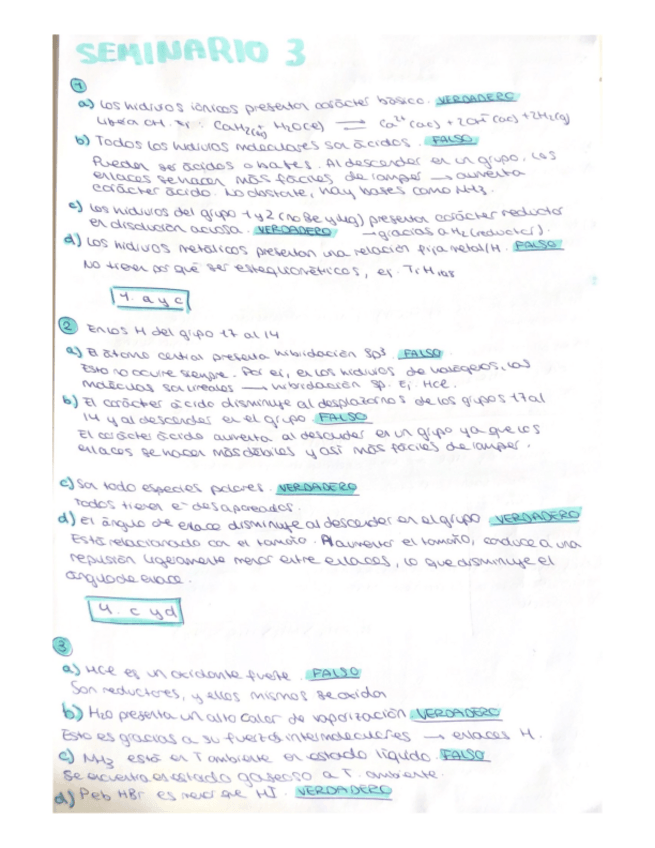 SEMINARIO 3
1
a) Los hidruros iónicos presentan carácter básico. VERDADERO
Libera OH-. Ej: CaH2(s) + H2O(l) ⇌ Ca2+(ac) + 2OH-(ac) + 2H2(g)
b) Todos los hidruros moleculares son ácidos. FALSO
Pueden ser ácidos o bases. Al descender en un grupo, los
enlaces se hacen más fáciles de romper → aumenta
carácter ácido. No obstante, hay bases como NH3.
c) Los hidruros del grupo 1 y 2 (no Be y Mg) presentan carácter reductor
en disolución acuosa. VERDADERO → gracias a H2 (reductor).
d) Los hidruros metálicos presentan una relación fija metal/H. FALSO
No tienen por qué ser estequiométricos, ej.
4. a y c
2 En los H del grupo 17 al 14
a) El átomo central presenta hibridación sp3. FALSO
Esto no ocurre siempre. Por ej, en los hidruros de halógenos, las
moléculas son lineales → hibridación sp. Ej: HCl.
b) El carácter ácido disminuye al desplazarnos de los grupos 17 al
14 y al descender en el grupo. FALSO
El carácter ácido aumenta al descender en un grupo ya que los
enlaces se hacen más débiles y así más fáciles de romper.
c) Son todo especies polares. VERDADERO
Todos tienen e- desapareados.
d) El ángulo de enlace disminuye al descender en el grupo VERDADERO
Está relacionado con el tamaño. Al aumentar el tamaño, conduce a una
repulsión ligeramente menor entre enlaces, lo que disminuye el
ángulo de enlace.
4. c y d
3
a) HCl es un oxidante fuerte. FALSO
Son reductores, y ellos mismos se oxidan
b) H2O presenta un alto calor de vaporización VERDADERO
Esto es gracias a su fuerzas intermoleculares → enlaces H.
c) NH3 está en T ambiente en estado líquido. FALSO
Se encuentra en estado gaseoso a T. ambiente.
d) Peb HBr es menor que HI. VERDADERO